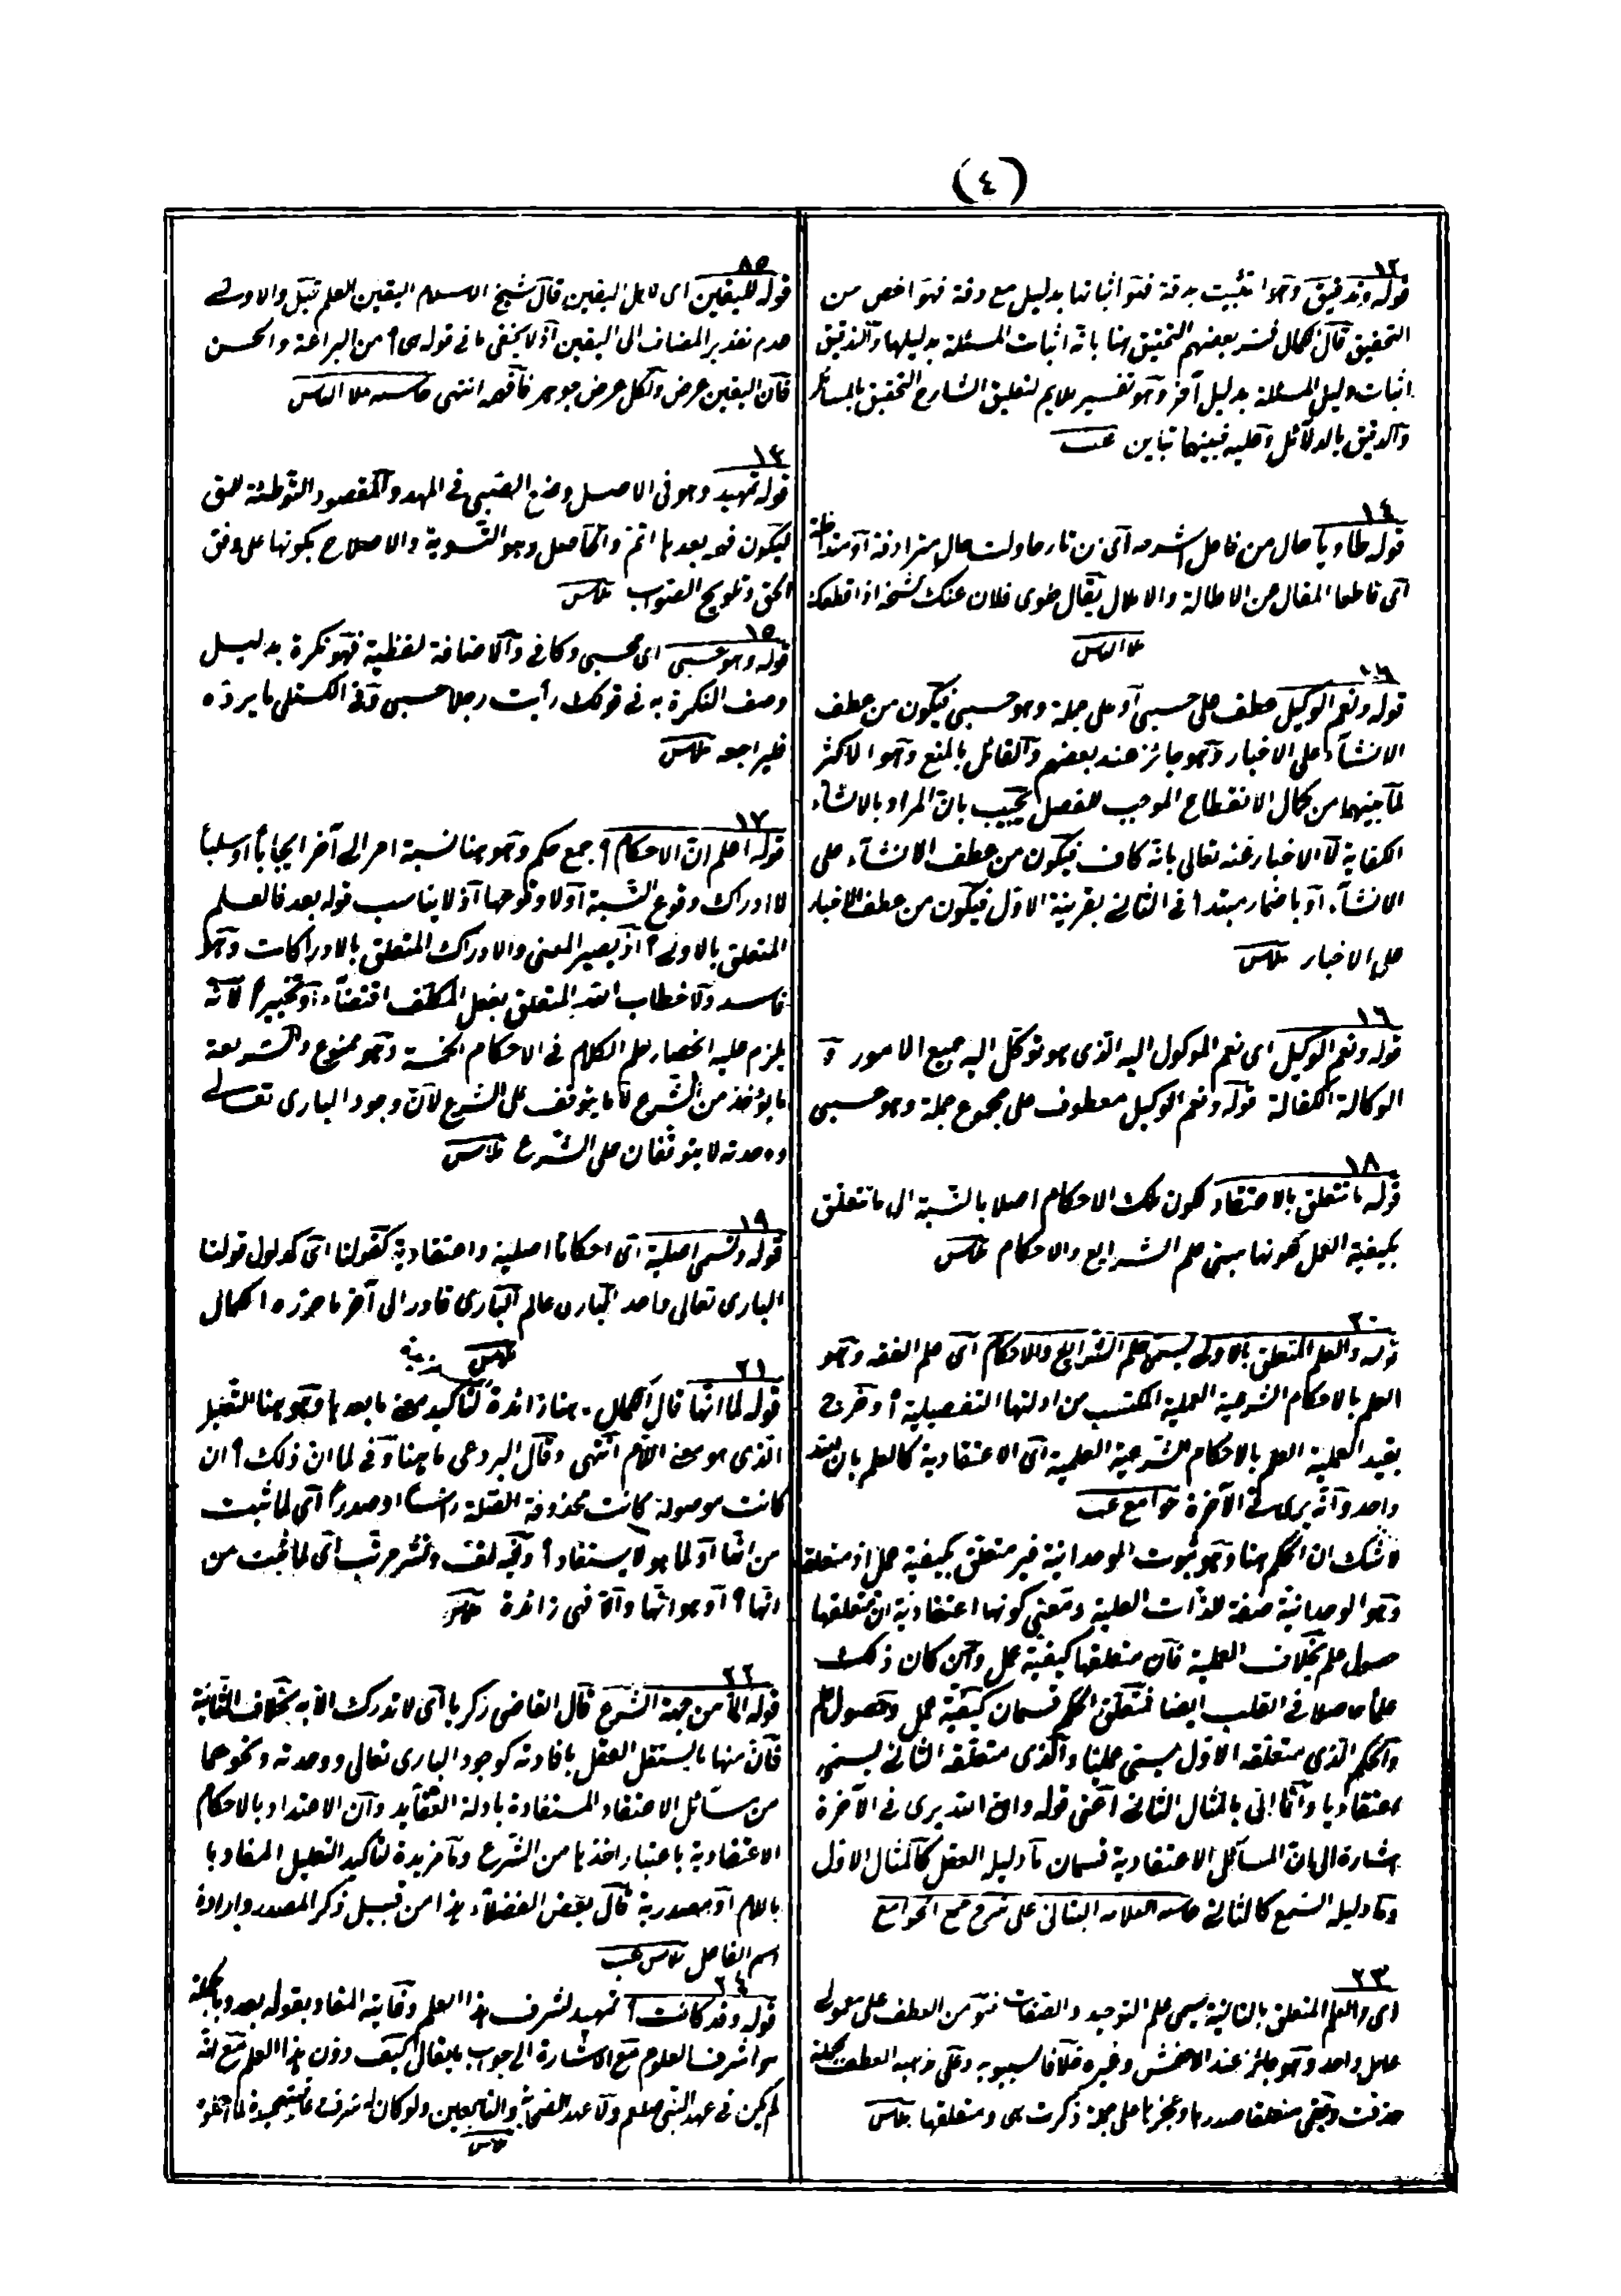 (٤)
١٣
قوله وتدقيق وهو اثبات بدقة فهو اثباتها بدليل مع دقة فهو اخص من
التحقيق قال الكمال فسر بعضهم التحقيق هنا بانه اثبات المسئلة بدليلها والتدقيق
اثبات دليل المسئلة بدليل آخر وهو تفسير ملايم لتعليق الشارح التحقيق بالمسائل
والتدقيق بالدلائل وعليه فبينهما تباين
١٤
قوله طاويا حال من فاعل اشرحه حاولت حال مترادفة او متداخلة
اى قاطعا المقال عن الاطالة والاملال يقال طوى فلان عنك كشحه اذا قطعك
ملا الياس
١٦
قوله ونعم الوكيل عطف على حسبى او على جملة وهو حسبى فيكون من عطف
الانشاء على الاخبار وهو جائز عند بعضهم والقائل بالمنع وهو الاكثر
لما بينهما من كمال الانقطاع الموجب للفصل يجيب بان المراد بالانشاء
الكفاية لا الاخبار عنه تعالى بانه كاف فيكون من عطف الانشاء على
الانشاء او باضمار مبتدأ فى الثانى بقرينة الاول فيكون من عطف الاخبار
على الاخبار
١٦
قوله ونعم الوكيل اى نعم الموكول اليه الذى هو توكل اليه جميع الامور و
الوكالة الكفالة قوله ونعم الوكيل معطوف على مجموع جملة وهو حسبى
١٨
قوله ما تتعلق بالاعتقاد لكون تلك الاحكام اصلا بالنسبة الى ما تتعلق
بكيفية العمل لكونها مبنى علم الشرايع والاحكام
٢٠
قوله والعلم المتعلق بالاولى يسمى علم الشرايع والاحكام اى علم الفقه وهو
العلم بالاحكام الشرعية العملية المكتسب من ادلتها التفصيلية وخرج
بقيد العملية العلم بالاحكام الشرعية العلمية اى الاعتقادية كالعلم بان الله
واحد وانه يرى فى الآخرة جوامع
لا شك ان الحكم هنا وهو ثبوت الوحدانية غير متعلق بكيفية عمل اذ متعلقه
وهو الوحدانية صفة للذات العلية ومعنى كونها اعتقادية ان متعلقها
حصول علم بخلاف العملية فان متعلقها كيفية عمل وان كان ذلك
علما حاصلا فى القلب ايضا فمتعلق الحكم قسمان كيفية عمل وحصول علم
والحكم الذى متعلقه الاول يسمى عمليا والذى متعلقه الثانى يسمى
اعتقاديا وانما اتى بالمثال الثانى اعنى قوله وان الله يرى فى الآخرة
اشارة الى ان المسائل الاعتقادية قسمان ما دليله العقل كالمثال الاول
وما دليله السمع كالثانى حاشية العلامه البنانى على شرح جمع الجوامع
٢٣
اى والعلم المتعلق بالثانية يسمى علم التوحيد والصفات فهو من العطف على معمولى
عامل واحد وهو جائز عند الاخفش وغيره خلافا لسيبويه وعلى مذهبه العطف جملة
حذفت وبقى متعلقا صدرها وعجزها على جملة ذكرت هى ومتعلقها
٨٥
قوله لليقين اى لاهل اليقين قال شيخ الاسلام اليقين العلم قيل والاولى
عدم تقدير المضاف الى اليقين اذ لا يخفى ما فى قوله من البراعة والحسن
فان اليقين عرض ولكل عرض جوهر فافهم انتهى حاشيه ملا الياس
١٣
قوله تمهيد وهو فى الاصل وضع الصبى فى المهد والمقصود التوطئة للحق
ليكون فهم بعدها اتم والحاصل وهو التسوية والاصلاح بكونها على وفق
الحق وتلويح الصواب
١٥
قوله وهو حسبى اى محسبى وكافى والاضافة لفظية فهو نكرة بدليل
وصف النكرة به فى قولك رأيت رجلا حسبى وفى الكستلى ما يرده
فليراجعه
١٧
قوله اعلم ان الاحكام جمع حكم وهو هنا نسبة امر الى آخر ايجابا او سلبا
لا ادراك وقوع النسبة او لا وقوعها اذ لا يناسب قوله بعد فالعلم
المتعلق بالاولى اذ يصير المعنى والادراك المتعلق بالادراكات وهو
فاسد ولا خطاب الله المتعلق بفعل المكلف اقتضاء او تخييرا لانه
يلزم عليه انحصار علم الكلام فى الاحكام الخمسة وهو ممنوع والشريعة
ما يؤخذ من الشرع لا ما يتوقف على الشرع لان وجود البارى تعالى
ووحدته لا يتوقفان على الشرع
١٩
قوله وتسمى اصلية اى احكاما اصلية واعتقادية كقولنا اى كمدلول قولنا
البارى تعالى واحد البارى عالم البارى قادر الى آخر ما حرره الكمال
٢١
قوله لما انها قال الكمال ما هنا زائدة لتأكيد معنى ما بعدها وهو هنا للتعليل
الذى هو معنى اللام انتهى وقال البردعى ما هنا وفى لما ان ذلك ان
كانت موصولة كانت محذوفة الصلة رأسا او صدرا اى لما ثبت
من انها او لما هو لا يستفاد وفيه لف ونشر مرتب اى لما ثبت من
انها او هو انها والا فهى زائدة
٢٢
قوله الا من جهة الشرع قال القاضى زكريا اى لا تدرك الا به بخلاف الثانية
فان منها ما يستقل العقل بافادته كوجود البارى تعالى ووحدته ونحوهما
من مسائل الاعتقاد المستفادة بادلة العقايد وان الاعتداد بالاحكام
الاعتقادية باعتبار اخذها من الشرع وما مزيدة لتأكيد التعليل المفاد با
باللام او مصدرية قال بعض الفضلاء هذا من قبيل ذكر المصدر وارادة
اسم الفاعل
٢٤
قوله وقد كانت تمهيد لشرف هذا العلم وغايته المفاد بقوله بعد وبالجملة
هو اشرف العلوم مع الاشارة الى جواب ما يقال كيف دون هذا العلم مع انه
لم يكن فى عهد النبى صلعم ولا عهد الصحابة والتابعين ولو كان له شرف